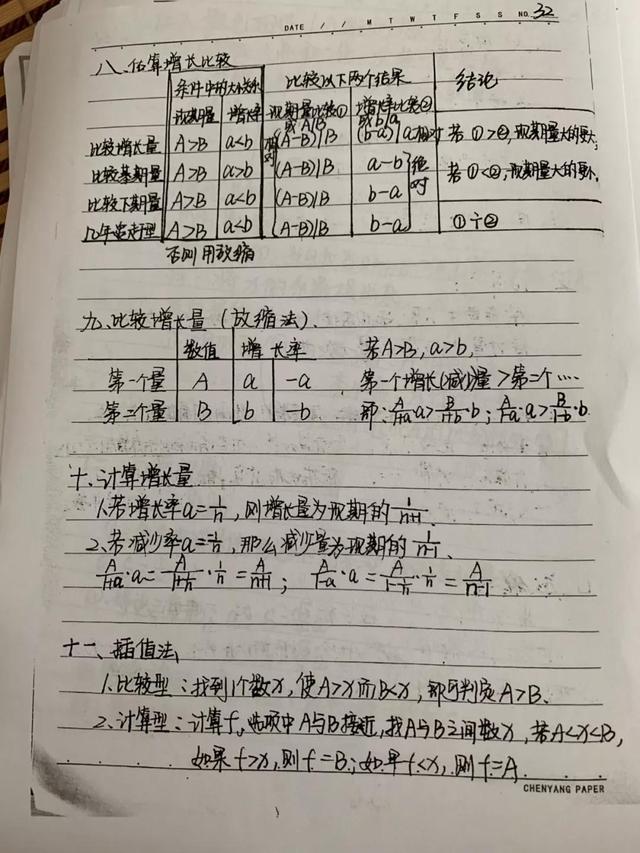 DATE / / M T W T F S S NO. 32
八、估算增长比较
条件中的大小关系 比较以下两个结果 结论
现期量 增长率 现期量比较① 或A/B 增长率比较② 或b/a
比较增长量 A>B a<b 相对 (A-B)/B (b-a)/a 相对 若①>②,现期量大的更大;
比较基期量 A>B a>b (A-B)/B a-b 绝对 若①<②,现期量大的更小,
比较下期量 A>B a<b (A-B)/B b-a
几年追赶型 A>B a<b (A-B)/B b-a ①÷②
否则用放缩
九、比较增长量(放缩法).
数值 增长率 若A>B,a>b,
第一个量 A a -a 第一个增长(减)量>第二个....
第二个量 B b -b 即:A/(1+a)·a>B/(1+b)·b;A/(1-a)·a>B/(1-b)·b
十、计算增长量
1、若增长率a=1/n,则增长量为现期的1/(n+1).
2、若减少率a=1/n,那么减少量为现期的1/(n-1).
A/(1+a)·a=A/(1+1/n)·1/n=A/(n+1); A/(1-a)·a=A/(1-1/n)·1/n=A/(n-1)
十一、插值法,
1、比较型:找到1个数x,使A>x而B<x,即可判定A>B.
2、计算型:计算f,选项中A与B接近,找A与B之间数x,若A<x<B,
如果f>x,则f=B;如果f<x,则f=A
CHENYANG PAPER